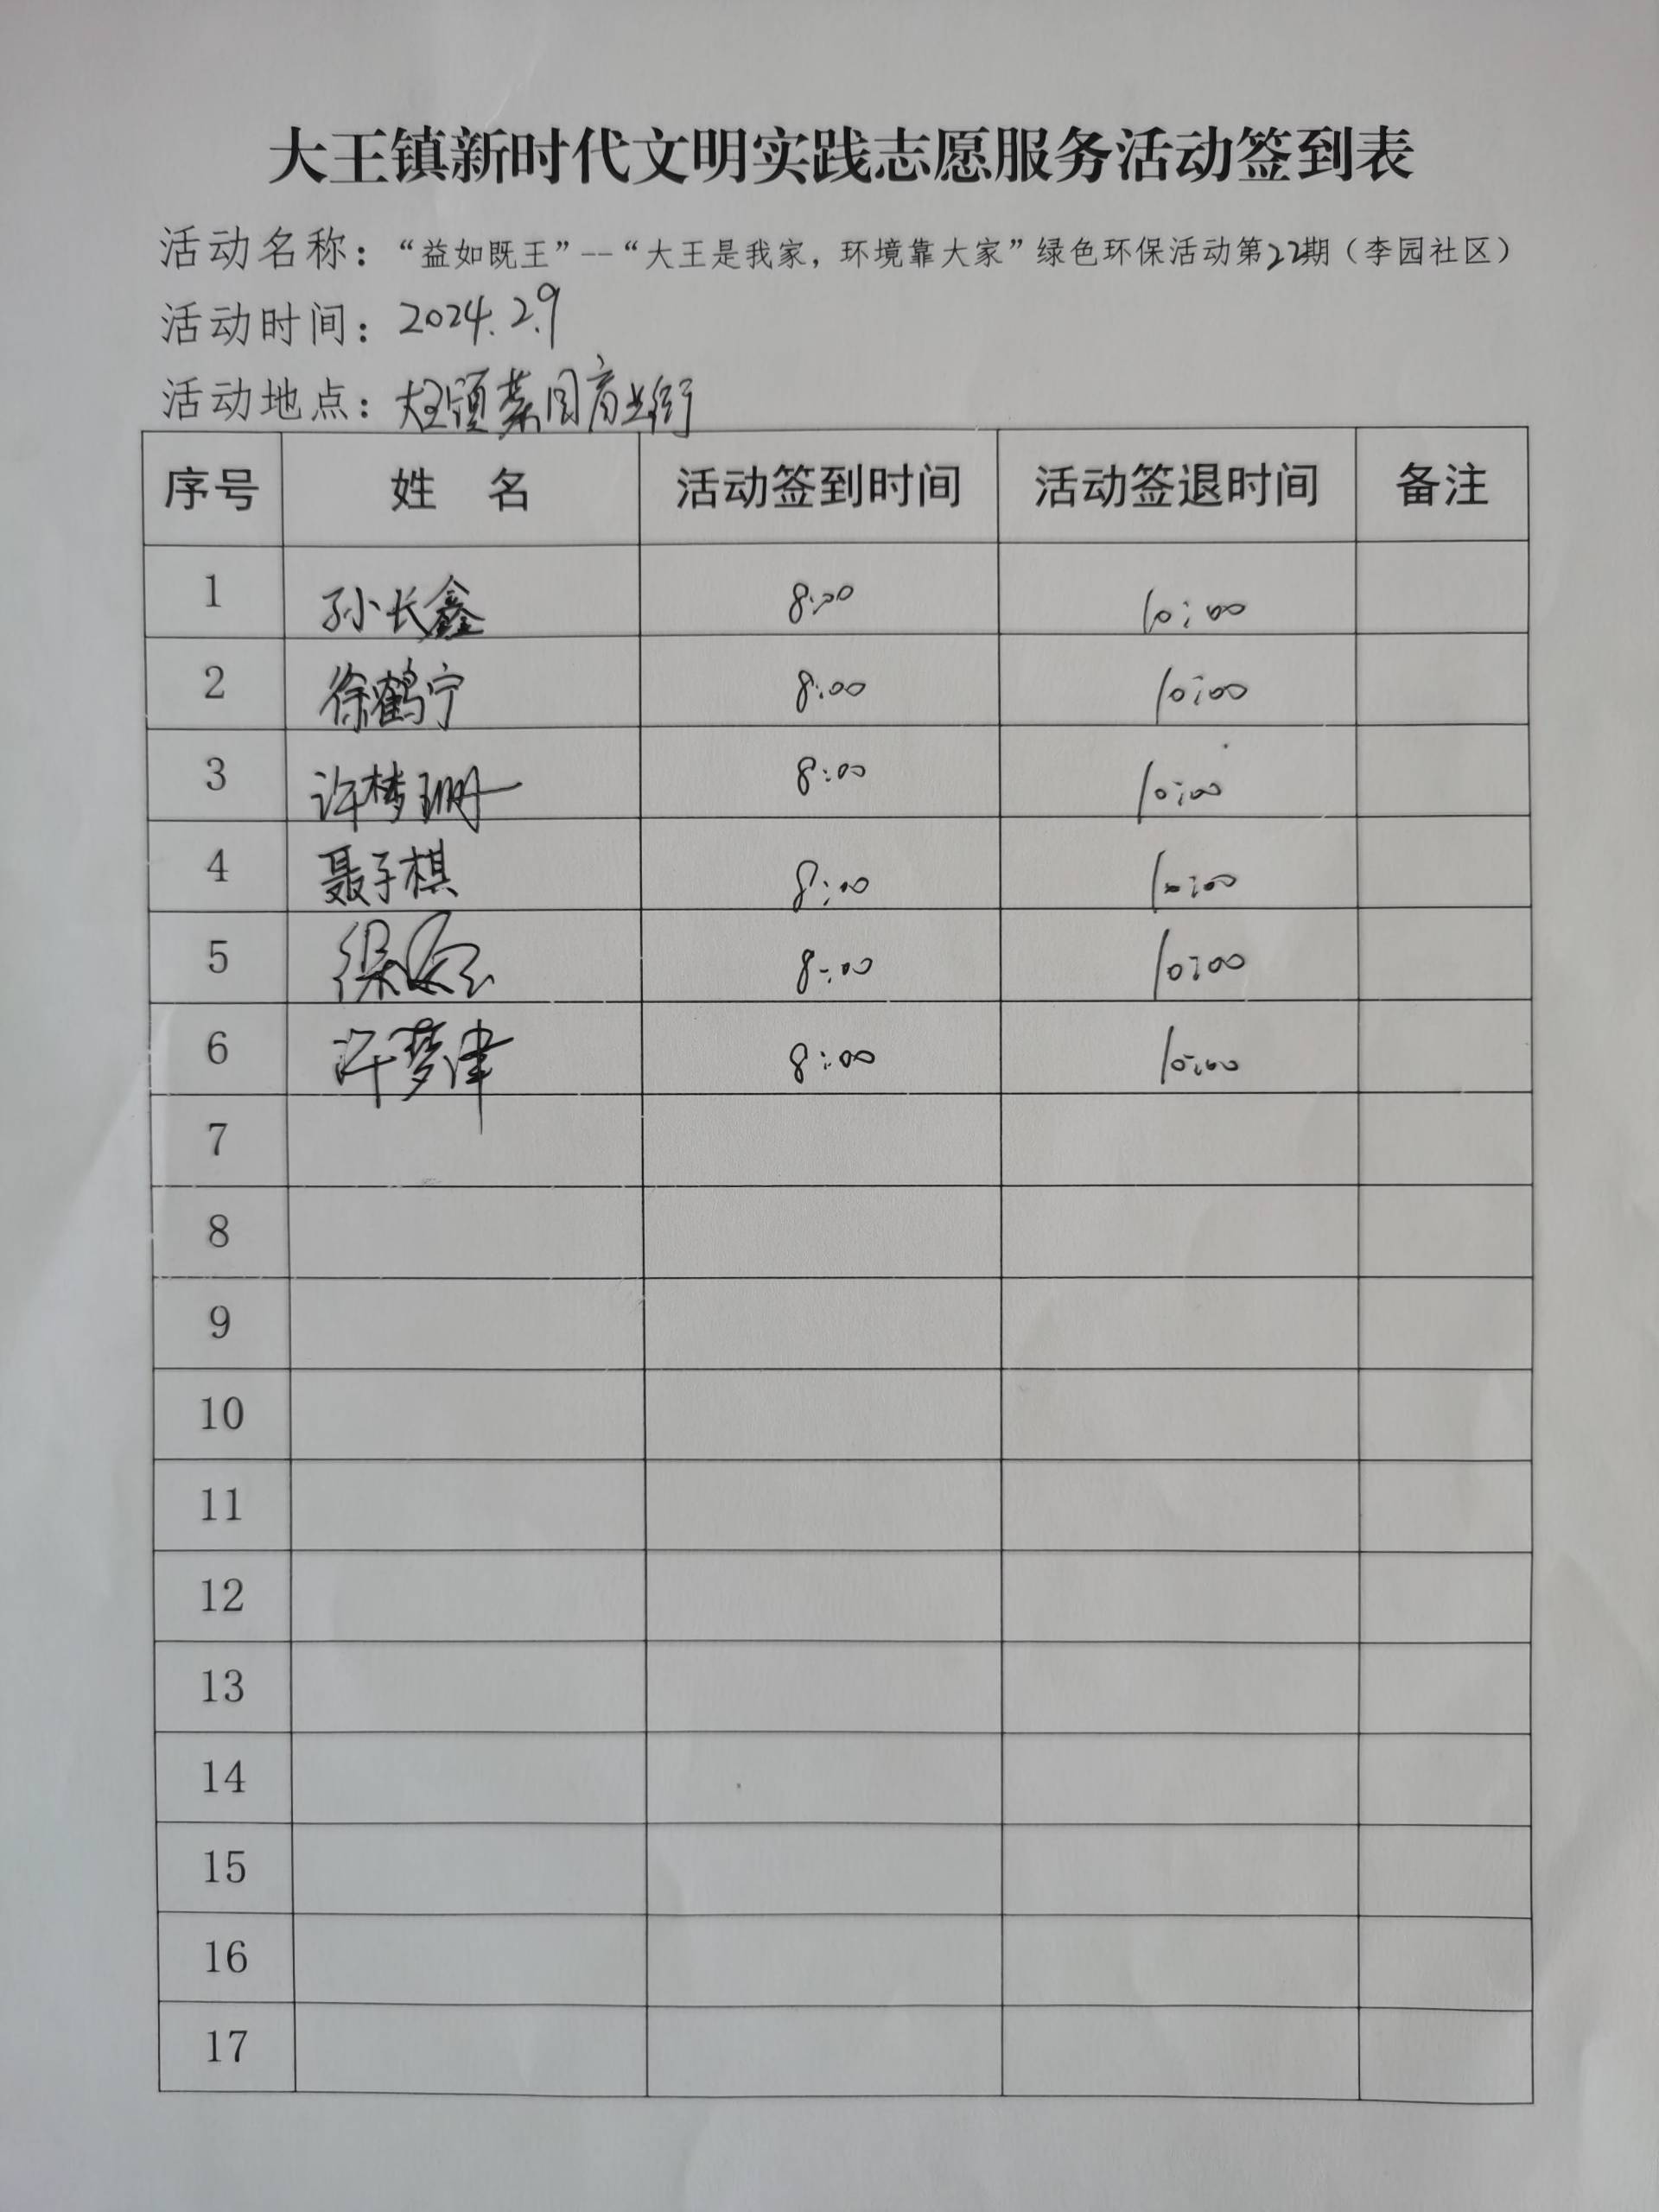 大王镇新时代文明实践志愿服务活动签到表
活动名称：“益如既王”--“大王是我家，环境靠大家”绿色环保活动第22期（李园社区）
活动时间：2024.2.9
活动地点：大王镇 商业街
序号 姓 名 活动签到时间 活动签退时间 备注
1 孙长鑫 8:00 10:00
2 徐鹤宁 8:00 10:00
3 许梦珊 8:00 10:00
4 聂子棋 8:00 10:00
5 8:00 10:00
6 许梦津 8:00 10:00
7
8
9
10
11
12
13
14
15
16
17